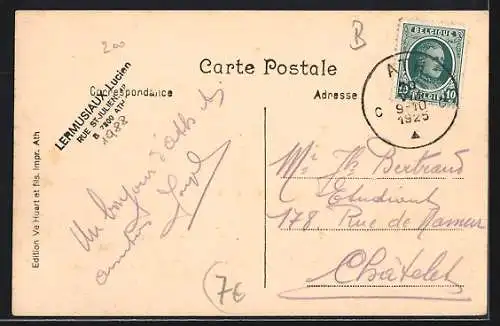 200
B
Carte Postale
Correspondance
Adresse
BELGIQUE
10
BELGIE
A
C
9-10
1925
LERMUSIAUX Lucien
RUE ST-JULIEN
B 7800 ATH
1988
Un bonjour d'Ath et
amitiés
Edition Ve Huart et fils. Impr. Ath
Mr Bertrand
Etudiant
178, Rue de Namur
Châtelet
7€